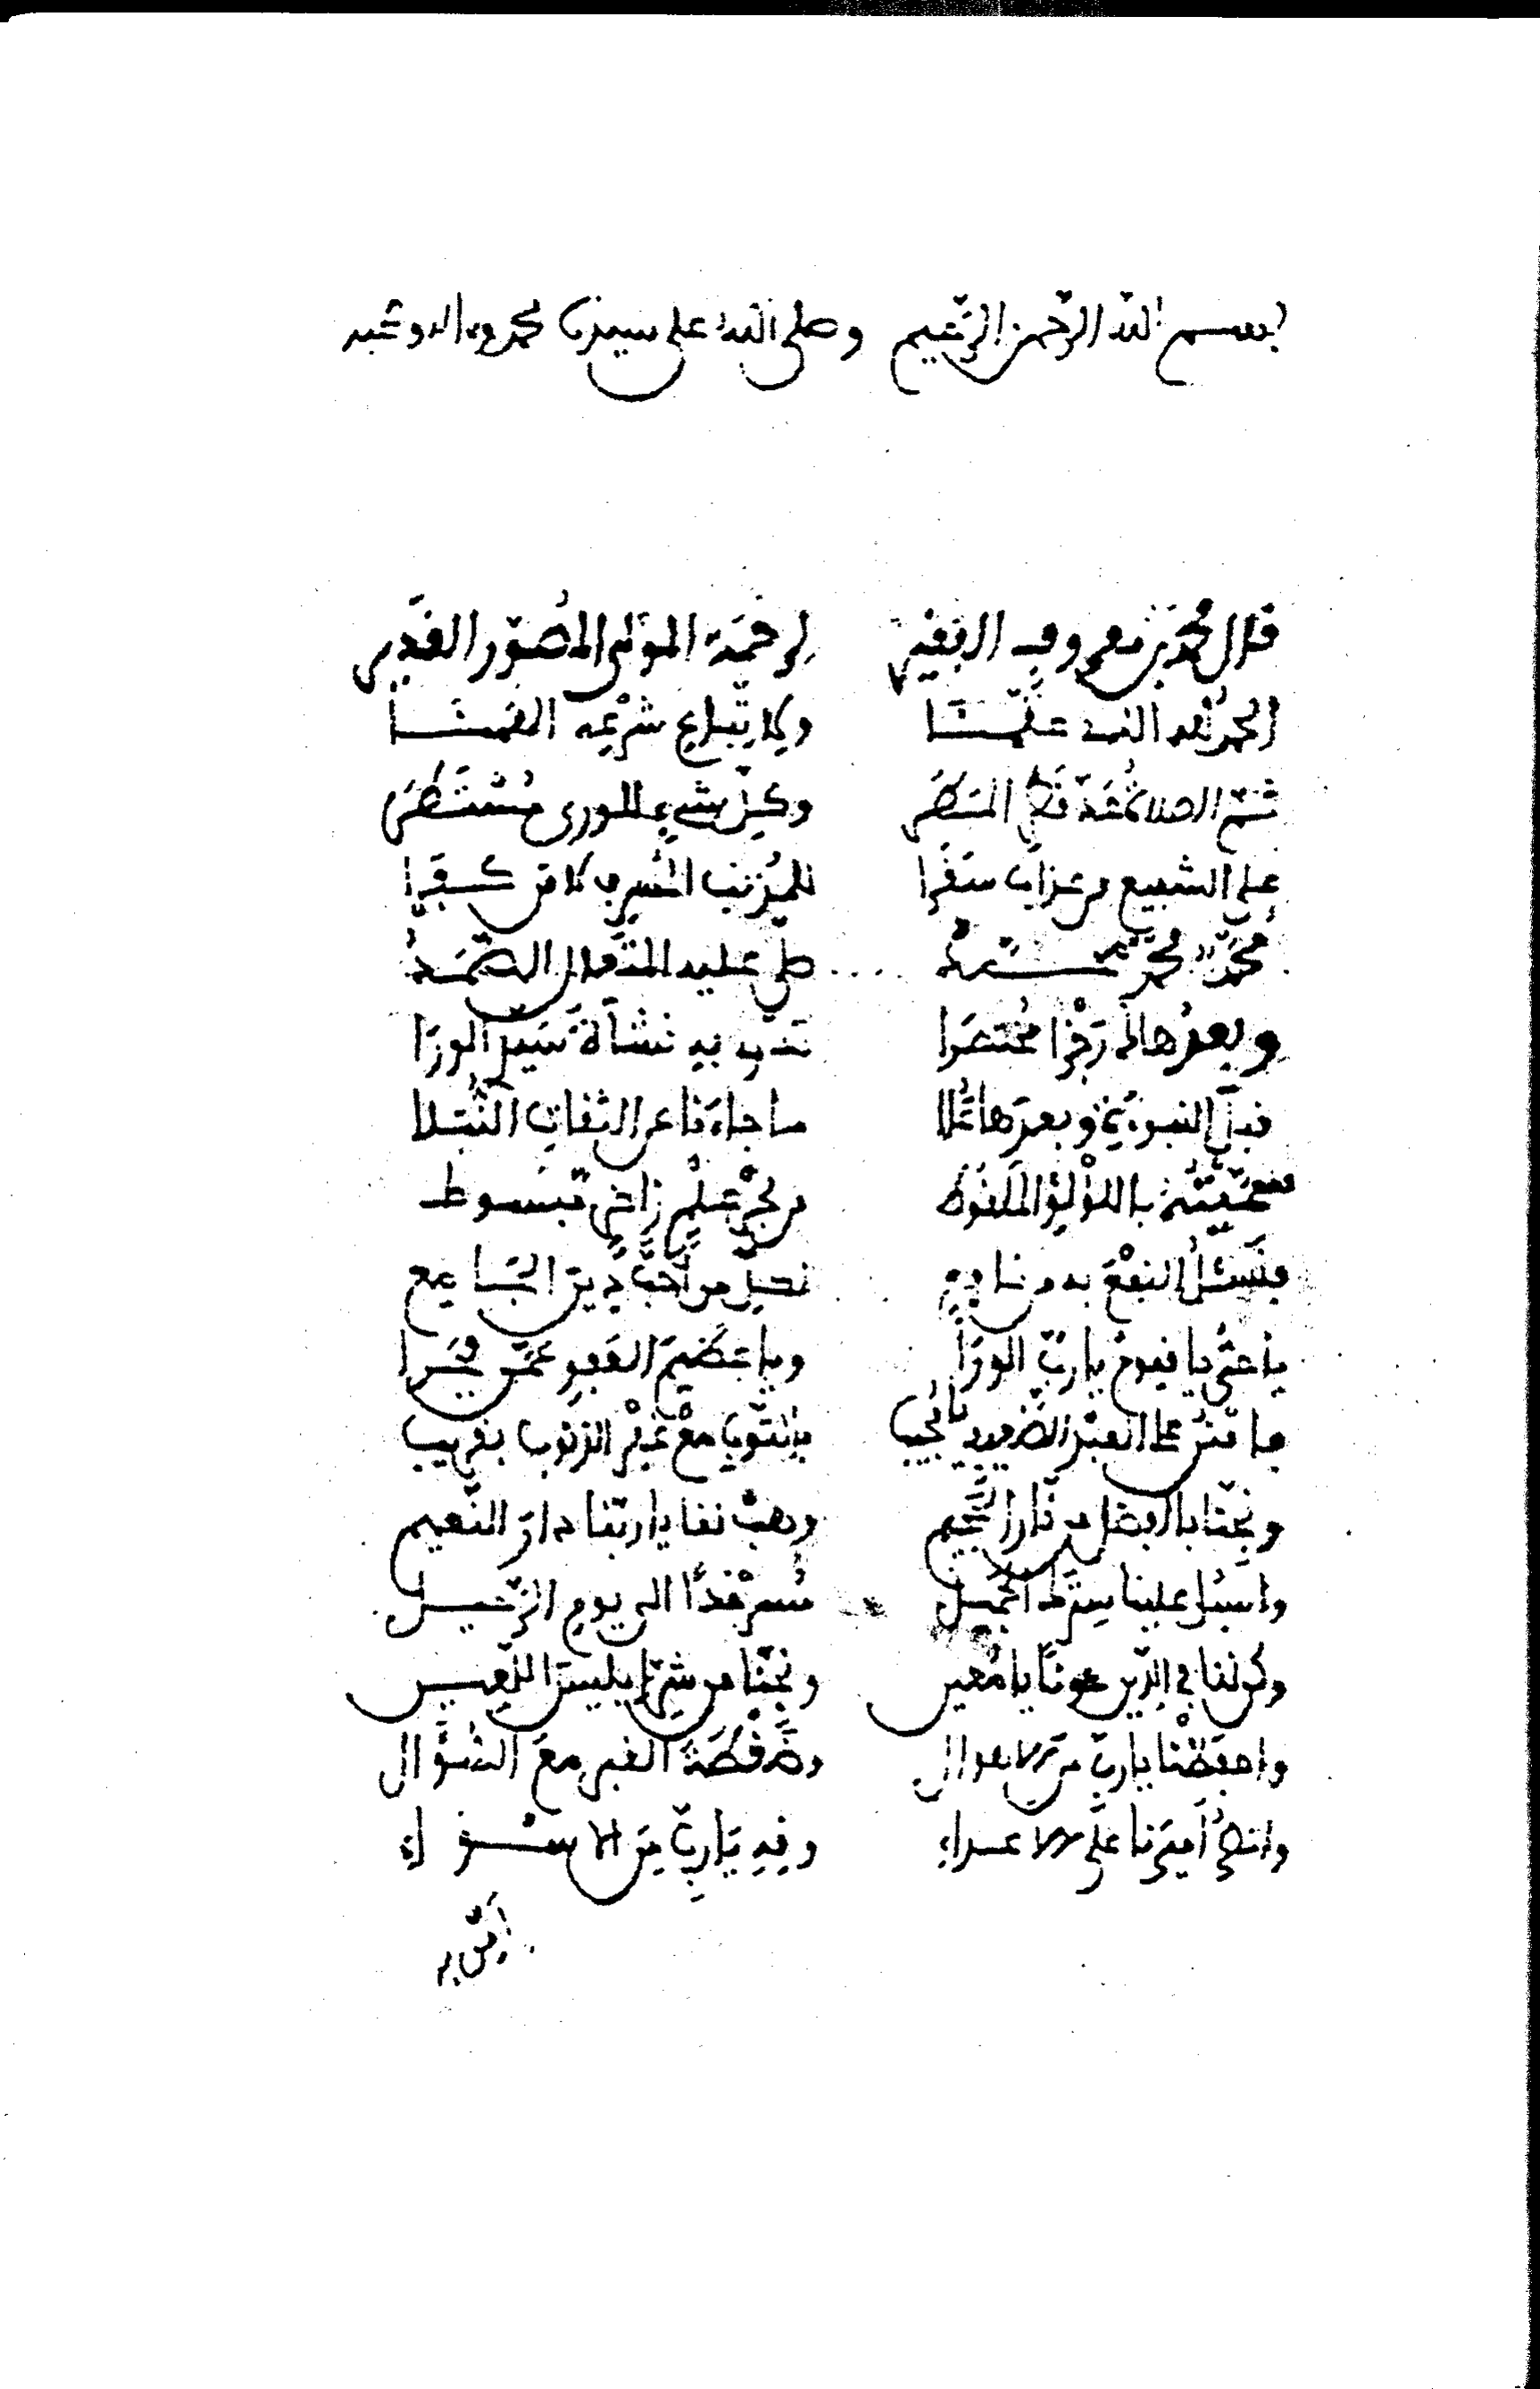 بسم الله الرحمن الرحيم وصلى الله على سيدنا محمد وءاله وصحبه
قال محمد بن معروف الفقير لرحمة المولى المصور القدير
الحمد لله الذي علمنا ولاتباع شرعه ألهمنا
ثم الصلاة عد قطر المطر وكل شيء للورى مستطر
على الشفيع من عذاب سقرا للمذنب المسرف لا من كفرا
محمد محمد صلى عليه المتعال الصمد
وبعد هاك رجزا مختصرا تدر به نشأة سير الورا
قبل النبوءة وبعدها علا ما جاءنا عن الثقات النبلا
سميته باللؤلؤ الملقوط من بحر علم زاخر مبسوط
فنسئل النفع به من نافع لكل من أحب دين الشافع
يا حي يا قيوم يا رب الورا ويا عظيم العفو عمن
فامنن على العبد الضعيف يا مجيب بالتوب مع غفر الذنوب بقريب
ونجنا بالفضل من نار الجحيم وهب لنا يا ربنا دار النعيم
واسبل علينا سترك الجميل سرمدا الى يوم الرحيل
وكن لنا في الدين عونا يا معين ونجنا من شر ابليس اللعين
واحفظنا يا رب من الاهوال وضغطة القبر مع السؤال
وانصر أميرنا على الاعداء وقه يا رب من الاسواء